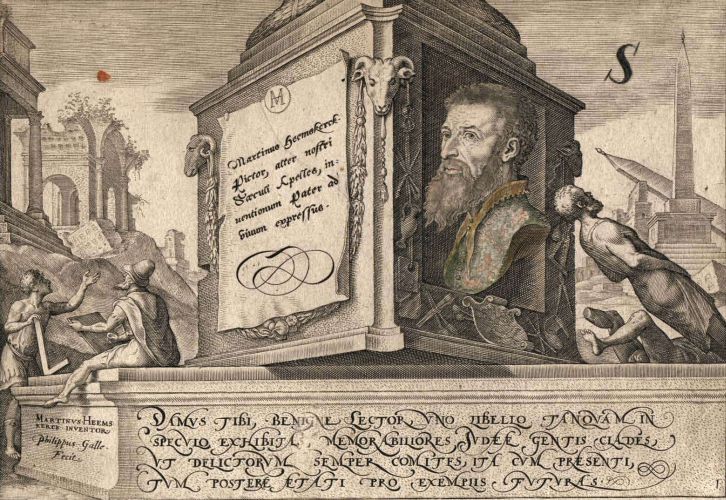 S
Martinus Heemskerck
Pictor, alter nostri
Sæculi Apelles, in-
uentionum Pater ad
viuum expressus.
MARTINVS HEEMS
KERCK INVENTOR
Philippus Galle
Fecit
DAMVS TIBI, BENIGNE LECTOR, VNO LIBELLO TANQVAM IN
SPECVLO EXHIBITAS, MEMORABILIORES IVDEÆ GENTIS CLADES,
VT DELICTORVM SEMPER COMITES, ITA CVM PRESENTI,
TVM POSTERE ETATI PRO EXEMPLIS FVTVRAS.
1